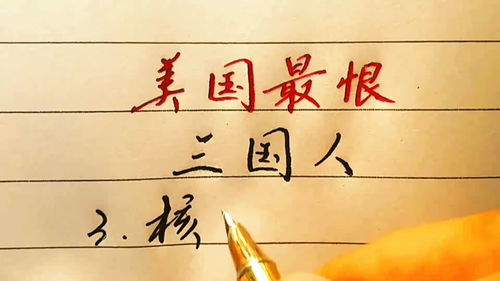 美国最恨
三国人
3.核